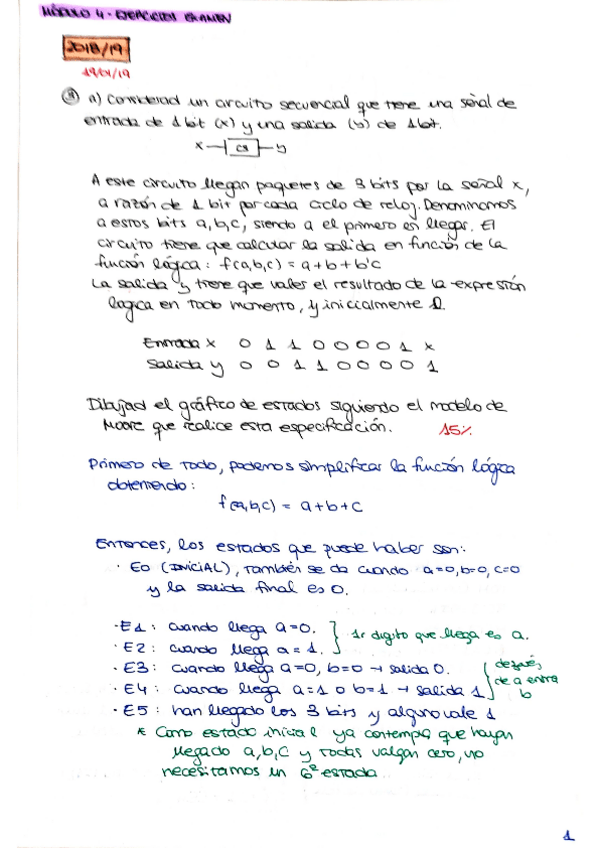 MÓDULO 4 - EJERCICIOS EXAMEN
2018/19
19/01/19
a) Considerad un circuito secuencial que tiene una señal de
entrada de 1 bit (x) y una salida (y) de 1 bit.
x CS y
A este circuito llegan paquetes de 3 bits por la señal x,
a razón de 1 bit por cada ciclo de reloj. Denominamos
a estos bits a,b,c, siendo a el primero en llegar. El
circuito tiene que calcular la salida en función de la
función lógica: f(a,b,c) = a+b+b'c
La salida y tiene que valer el resultado de la expresión
lógica en todo momento, y inicialmente 0.
Entrada x 0 1 1 0 0 0 0 1 x
Salida y 0 0 1 1 0 0 0 0 1
Dibujad el gráfico de estados siguiendo el modelo de
Moore que realice esta especificación. 15%
Primero de todo, podemos simplificar la función lógica
obteniendo:
f(a,b,c) = a+b+c
Entonces, los estados que puede haber son:
· E0 (INICIAL), también se da cuando a=0,b=0,c=0
y la salida final es 0.
· E1: cuando llega a=0. } 1r dígito que llega es a.
· E2: cuando llega a=1.
· E3: cuando llega a=0, b=0 → salida 0. { después
· E4: cuando llega a=1 o b=1 → salida 1 de a entra
· E5: han llegado los 3 bits y alguno vale 1 b
* Como estado inicial ya contempla que hayan
llegado a,b,c y todas valgan cero, no
necesitamos un 6º estado
1